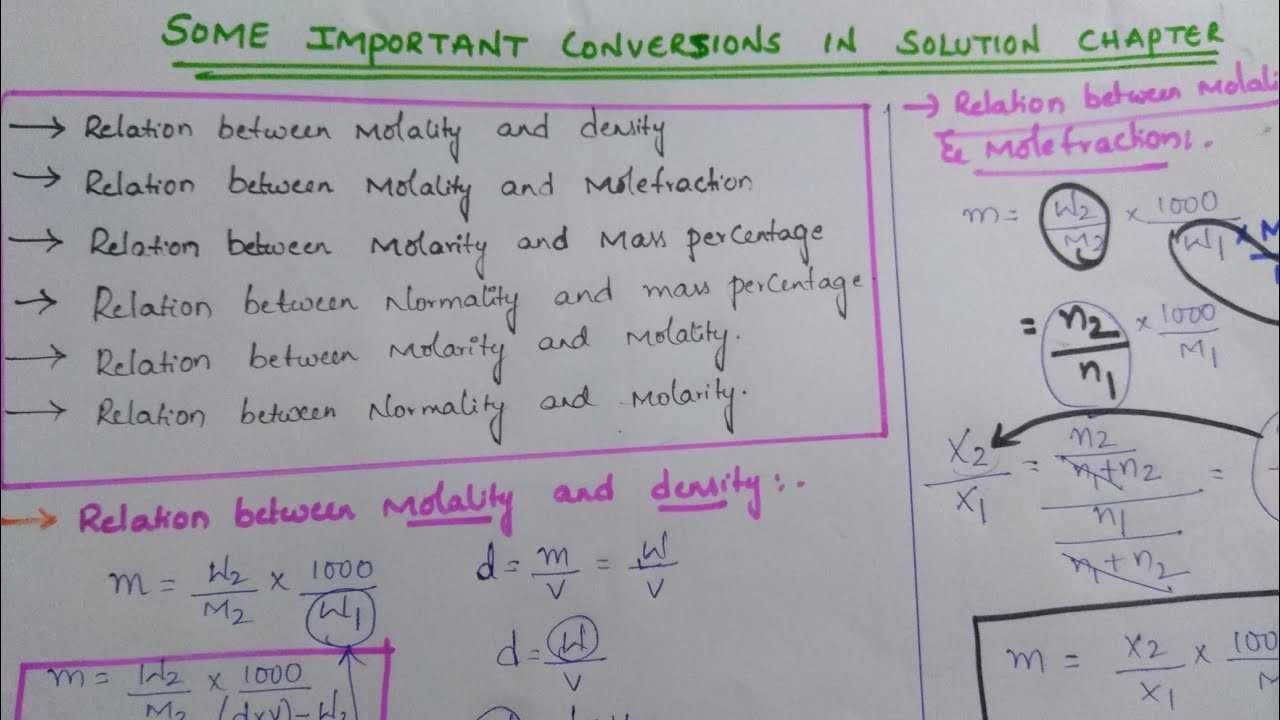 SOME IMPORTANT CONVERSIONS IN SOLUTION CHAPTER
→ Relation between Molality and density
→ Relation between Molality and Molefraction
→ Relation between Molarity and Mass percentage
→ Relation between Normality and mass percentage
→ Relation between Molarity and Molality.
→ Relation between Normality and Molarity.
→ Relation between Molality and density:.
m = W2/M2 × 1000/W1
d = m/V = W/V
d = W/V
m = W2/M2 × 1000/(d×V)-W2
→ Relation between Molali
& Molefractions.
m = W2/M2 × 1000/W1 × M
= n2/n1 × 1000/M1
X2/X1 = n2/n1+n2 / n1/n1+n2 =
m = X2/X1 × 100